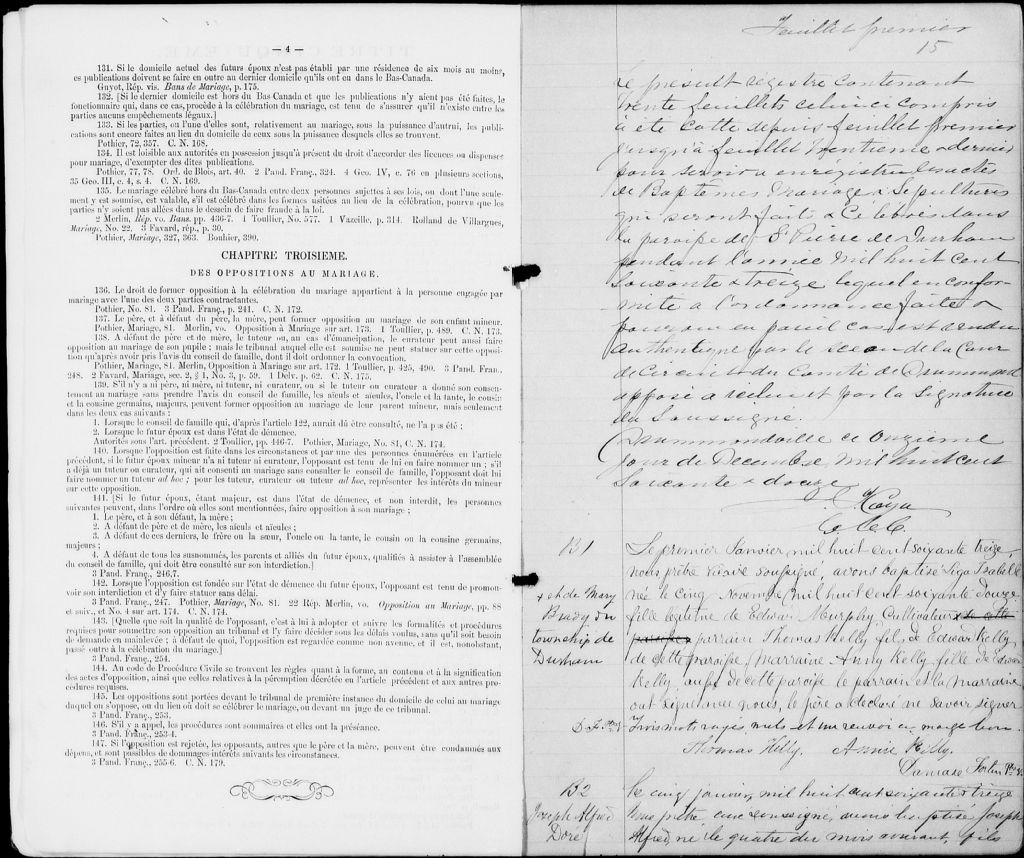 — 4 —
131. Si le domicile actuel des futurs époux n'est pas établi par une résidence de six mois au moins,
ces publications doivent se faire en outre au dernier domicile qu'ils ont eu dans le Bas-Canada.
Guyot, Rép. vis. Bans de Mariage, p. 175.
132. [Si le dernier domicile est hors du Bas-Canada et que les publications n'y aient pas été faites, le
fonctionnaire qui, dans ce cas, procède à la célébration du mariage, est tenu de s'assurer qu'il n'existe entre les
parties aucuns empêchements légaux.]
133. Si les parties, ou l'une d'elles sont, relativement au mariage, sous la puissance d'autrui, les publi-
cations sont encore faites au lieu du domicile de ceux sous la puissance desquels elles se trouvent.
Pothier, 72, 357. C. N. 168.
134. Il est loisible aux autorités en possession jusqu'à présent du droit d'accorder des licences ou dispenses
pour mariage, d'exempter des dites publications.
Pothier, 77, 78. Ord. de Blois, art. 40. 2 Pand. Franç., 324. 4 Geo. IV, c. 76 en plusieurs sections,
35 Geo. III, c. 4, s. 4. C. N. 169.
135. Le mariage célébré hors du Bas-Canada entre deux personnes sujettes à ses lois, ou dont l'une seule-
ment y est soumise, est valable, s'il est célébré dans les formes usitées au lieu de la célébration, pourvu que les
parties n'y soient pas allées dans le dessein de faire fraude à la loi.
2 Merlin, Rép. vo. Bans. pp. 436-7. 1 Toullier, No. 577. 1 Vazeille, p. 314. Rolland de Villargues,
Mariage, No. 22. 3 Favard, rép., p. 30.
Pothier, Mariage, 327, 363. Bouhier, 390.
CHAPITRE TROISIEME.
DES OPPOSITIONS AU MARIAGE.
136. Le droit de former opposition à la célébration du mariage appartient à la personne engagée par
mariage avec l'une des deux parties contractantes.
Pothier, No. 81. 3 Pand. Franç., p. 241. C. N. 172.
137. Le père, et à défaut du père, la mère, peut former opposition au mariage de son enfant mineur.
Pothier, Mariage, 81. Merlin, vo. Opposition à Mariage sur art. 173. 1 Toullier, p. 489. C. N. 173.
138. A défaut de père et de mère, le tuteur ou, au cas d'émancipation, le curateur peut aussi faire
opposition au mariage de son pupile ; mais le tribunal auquel elle est soumise ne peut statuer sur cette opposi-
tion qu'après avoir pris l'avis du conseil de famille, dont il doit ordonner la convocation.
Pothier, Mariage, 81. Merlin, Opposition à Mariage sur art. 172. 1 Toullier, p. 425, 490. 3 Pand. Fran.,
248. 2 Favard, Mariage, sec. 2, § 1, No. 3, p. 59. 1 Delv. p. 62. C. N. 175.
139. S'il n'y a ni père, ni mère, ni tuteur, ni curateur, ou si le tuteur ou curateur a donné son consen-
tement au mariage sans prendre l'avis du conseil de famille, les aïeuls et aïeules, l'oncle et la tante, le cousin
et la cousine germains, majeurs, peuvent former opposition au mariage de leur parent mineur, mais seulement
dans les deux cas suivants :
1. Lorsque le conseil de famille qui, d'après l'article 122, aurait dû être consulté, ne l'a pas été ;
2. Lorsque le futur époux est dans l'état de démence.
Autorités sous l'art. précédent. 2 Toullier, pp. 446-7. Pothier, Mariage, No. 81, C. N. 174.
140. Lorsque l'opposition est faite dans les circonstances et par une des personnes énumérées en l'article
précédent, si le futur époux mineur n'a ni tuteur ni curateur, l'opposant est tenu de lui en faire nommer un ; s'il
a déjà un tuteur ou curateur, qui ait consenti au mariage sans consulter le conseil de famille, l'opposant doit lui
faire nommer un tuteur ad hoc ; pour les tuteur, curateur ou tuteur ad hoc, représenter les intérêts du mineur
sur cette opposition.
141. [Si le futur époux, étant majeur, est dans l'état de démence, et non interdit, les personnes
suivantes peuvent, dans l'ordre où elles sont mentionnées, faire opposition à son mariage ;
1. Le père, et à son défaut, la mère ;
2. A défaut de père et de mère, les aïeuls et aïeules ;
3. A défaut de ces derniers, le frère ou la sœur, l'oncle ou la tante, le cousin ou la cousine germains,
majeurs ;
4. A défaut de tous les susnommés, les parents et alliés du futur époux, qualifiés à assister à l'assemblée
du conseil de famille, qui doit être consulté sur son interdiction.]
3 Pand. Franç., 246,7.
142. Lorsque l'opposition est fondée sur l'état de démence du futur époux, l'opposant est tenu de promou-
voir son interdiction et d'y faire statuer sans délai.
3 Pand. Franç., 247. Pothier, Mariage, No. 81. 22 Rép. Merlin, vo. Opposition au Mariage, pp. 88
et suiv., et No. 4 sur art. 174. C. N. 174.
143. [Quelle que soit la qualité de l'opposant, c'est à lui à adopter et suivre les formalités et procédures
requises pour soumettre son opposition au tribunal et l'y faire décider sous les délais voulus, sans qu'il soit besoin
de demande en mainlevée ; à défaut de quoi, l'opposition est regardée comme non avenue, et il est, nonobstant,
passé outre à la célébration du mariage.]
3 Pand. Franç., 254.
144. Au code de Procédure Civile se trouvent les règles quant à la forme, au contenu et à la signification
des actes d'opposition, ainsi que celles relatives à la péremption décrétée en l'article précédent et aux autres pro-
cédures requises.
145. Les oppositions sont portées devant le tribunal de première instance du domicile de celui au mariage
duquel on s'oppose, ou du lieu où doit se célébrer le mariage, ou devant un juge de ce tribunal.
3 Pand. Franç., 253.
146. S'il y a appel, les procédures sont sommaires et elles ont la préséance.
3 Pand. Franç., 253-4.
147. Si l'opposition est rejetée, les opposants, autres que le père et la mère, peuvent être condamnés aux
dépens, et sont passibles de dommages intérêts suivant les circonstances.
3 Pand. Franç., 255-6. C. N. 179.
Feuillet premier
15
Le présent registre contenant
trente feuillets celui ci compris
a été cotté depuis feuillet premier
jusqu'à feuillet trentième & dernier
pour servir a enregistrer les actes
de Baptemes, Mariages & Sepultures
qui seront faits & Celebrés dans
la paroisse de St Pierre de Durham
pendant l'année mil huit cent
Soixante & treize lequel en confor-
mité a l'ordonnance faite &
pourvue en pareil cas est rendu
authentique par le sceau de la Cour
de Circuit du Comté de Drummond
apposé a icelui et par la Signature
du Soussigné.
Drummondville ce Onzième
jour de Decembre mil huit cent
Soixante & douze
C. C. C.
B1
+ et de Mary
Brady du
township de
Durham
Le premier Janvier mil huit cent soixante treize,
nous prêtre vicaire soussigné, avons baptisé Liza Isabelle
née le cinq Novembre mil huit cent soixante Douze
fille légitime de Edwar Murphy, Cultivateur de cette
paroisse, parrain Thomas Kelly fils de Edwar Kelly,
de cette paroisse, Marraine Anny Kelly fille de Edwar
Kelly aussi de cette paroisse le parrain et la marraine
ont signé avec nous, le père a déclaré ne savoir signer
Trois mots rayés nuls et un renvoi en marge bon.
Thomas Kelly. Annie Kelly.
Damase Fortin Ptre
B2
Joseph Alfred
Doré
Le cinq janvier, mil huit cent soixante & treize
Nous prêtre, curé soussigné, avons baptisé Joseph
Alfred, né le quatre du mois courant, fils